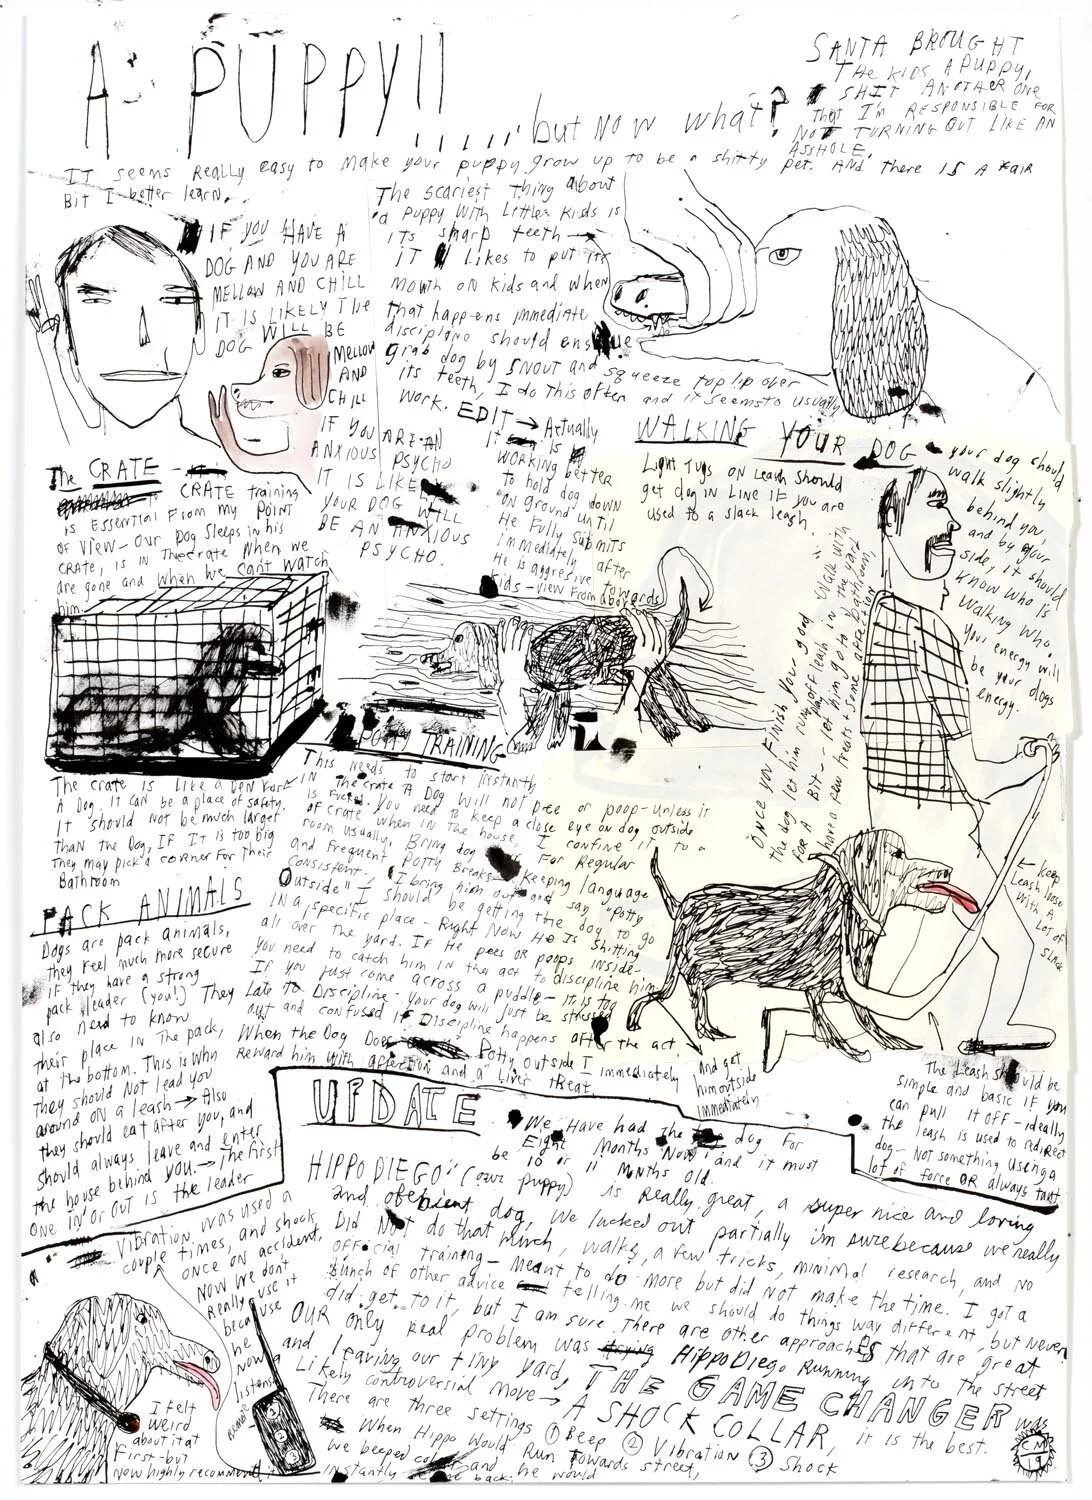 A PUPPY!!
.....but now what?
SANTA BROUGHT
THE KIDS A PUPPY,
SHIT ANOTHER ONE
That I'M RESPONSIBLE FOR
NOT TURNING OUT LIKE AN
ASSHOLE.
IT seems Really easy to make your puppy grow up to be a shitty pet. AND there IS A FAIR
Bit I better learn.
IF YOU HAVE A
DOG AND YOU ARE
MELLOW AND CHILL
IT IS LIKELY THE
DOG WILL BE
MELLOW
AND
CHILL
IF YOU ARE AN
ANXIOUS PSYCHO
IT IS LIKELY
YOUR DOG WILL
BE AN ANXIOUS
PSYCHO.
The scariest thing about
a puppy with Little Kids is
its sharp teeth →
IT likes to put its
mouth on kids and when
that happens immediate
discipline should ensue
grab dog by snout and squeeze top lip over
its teeth, I do this often and it seems to usually
work. EDIT → Actually
It is
WORKING better
to hold dog down
on ground until
He Fully Submits
Immediately after
He is aggresive towards
kids - view From above
The CRATE -
CRATE training
is Essential From my POINT
OF View - Our Dog Sleeps in his
CRATE, is in The crate when we
are gone and when we cant watch
him.
The crate is Like a DEN For
A Dog. IT CAN be a place of safety.
It should not be much larger
than the Dog, IF IT is too big
They may pick a corner For Their
Bathroom
POTTY TRAINING
This needs to start instantly
IN The crate A Dog will not pee or poop - unless it
is Forced. You need to keep a close eye on dog outside
of crate when in the house, I confine it to a
room usually. Bring dog For Regular
and Frequent Potty Breaks - Keeping language
Consistent, I bring him out and say "Potty
Outside" I should be getting the dog to go
IN A specific place - Right Now He Is Shitting
all over the yard. If He pees or poops inside -
you need to catch him In the act to discipline him
If you just come across a puddle - it is too
Late to Discipline - your dog will just be stressed
out and confused if Discipline happens after the act,
When the Dog Does Potty outside I immediately
Reward him with affection and a Liver treat.
and get
him outside
immediately
WALKING YOUR DOG - your dog should
walk slightly
behind you,
and by your
side, it should
Know who is
walking who.
Your energy will
be your dogs
energy.
Light Tugs on Leash Should
get dog in Line if you are
used to a slack leash
Once you Finish your good walk with
the dog let him run off leash in the yard
for a Bit - let him go to bathroom,
have a few treats + some affection
← Keep
Leash loose
With A
Lot of
SLACK
The Leash should be
simple and basic if you
can pull it off - ideally
the leash is used to redirect
dog - Not something using a
lot of force OR always taut
PACK ANIMALS
Dogs are pack animals,
they feel much more secure
if they have a strong
pack leader (you!) They
also need to know
their place in The pack,
at the bottom. This is why
they should Not lead you
around on a leash → Also
they should eat after you, and
should always leave and enter
the house behind you. → The first
one in or out is the leader
UPDATE
We Have had the dog For
Eight Months Now and it must
be 10 or 11 months old.
HIPPO DIEGO" (our puppy) is Really great, a super nice and loving
and obedient dog, we lucked out partially i'm sure because we really
Did Not do that much, walks, a few tricks, minimal research, and no
official training - meant to do more but did not make the time. I got a
bunch of other advice telling me we should do things way different, but never
did get to it, but I am sure there are other approachEs that are great
OUR only Real problem was Hippo Diego Running into the street
and leaving our tiny yard,
Likely controversial move → THE GAME CHANGER was
A SHOCK COLLAR, it is the best.
There are three settings ① Beep ② Vibration ③ Shock
When Hippo would Run Towards street,
we beeped collar and he would
instantly come back.
Vibration was used a
couple times, and shock
once on accident,
Now we don't
Really use it
because
he
now
listens
Remote
1
2
3
I felt
weird
about it at
First - but
now highly recommend
CM
19